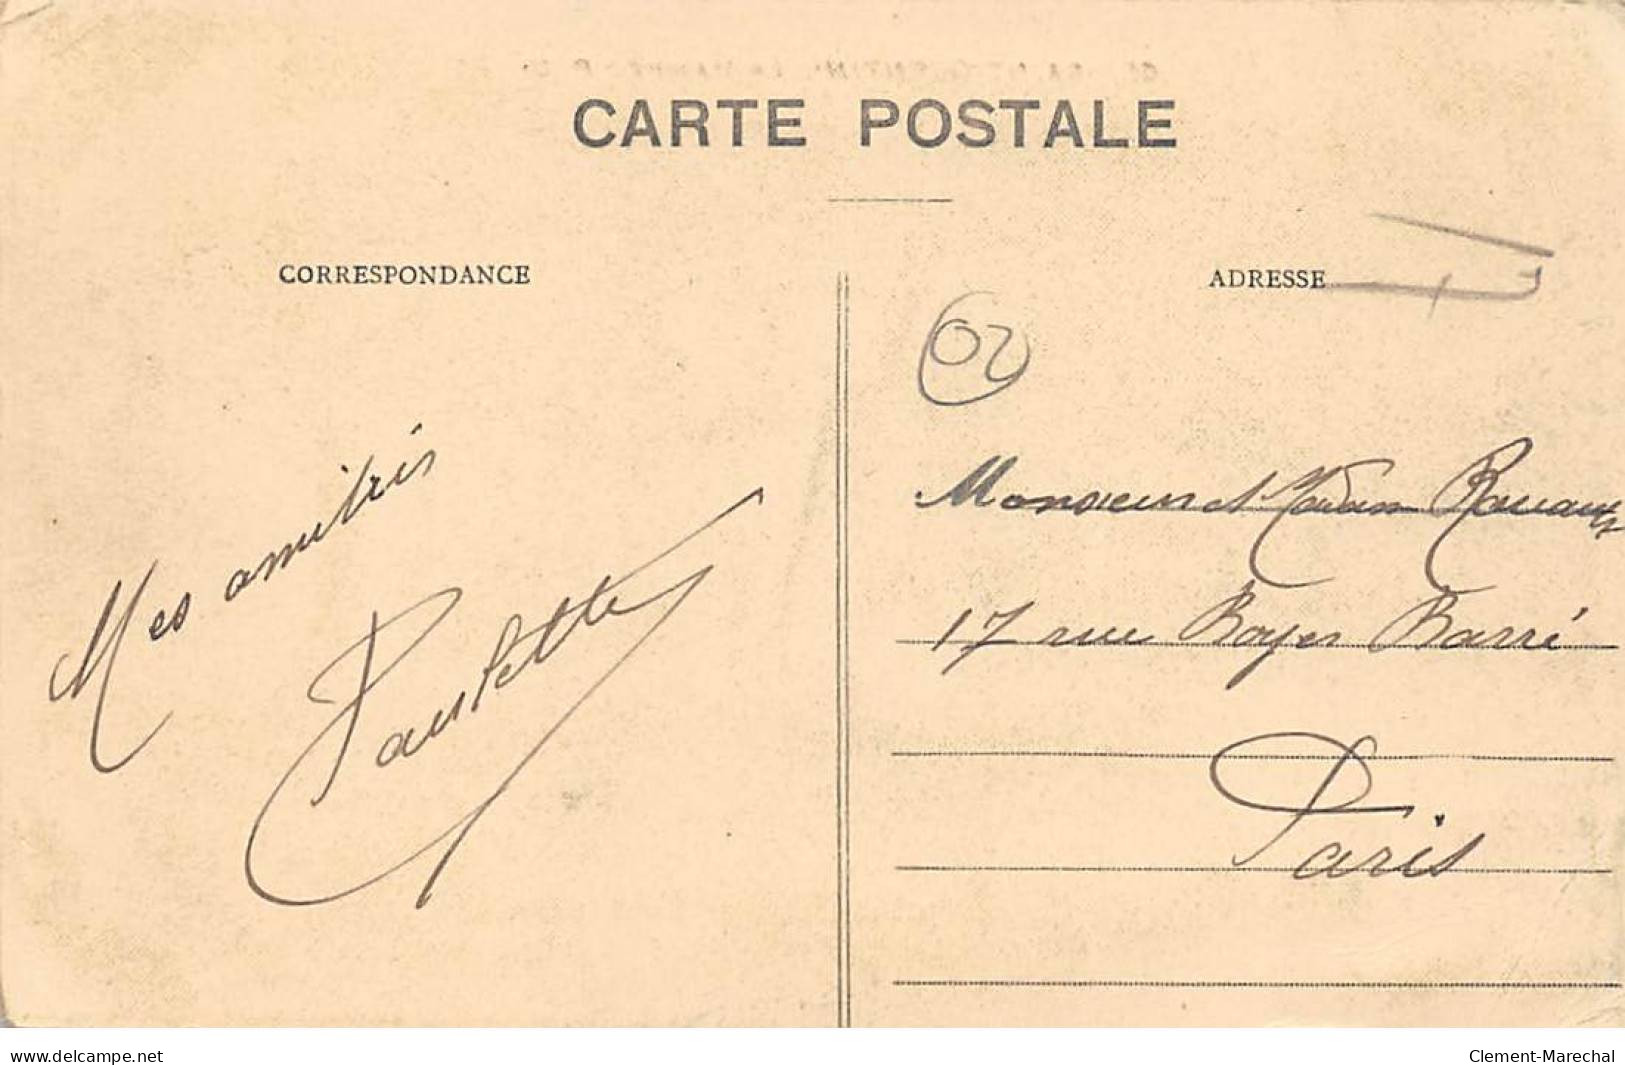 CARTE POSTALE
CORRESPONDANCE
ADRESSE
02
Mes amitiés
Paulette
Monsieur et Madam
17 rue Boyer Barré
Paris
www.delcampe.net
Clement-Marechal